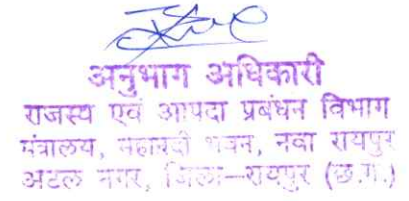 अनुभाग अधिकारी
राजस्व एवं आपदा प्रबंधन विभाग
मंत्रालय, महानदी भवन, नवा रायपुर
अटल नगर, जिला-रायपुर (छ.ग.)